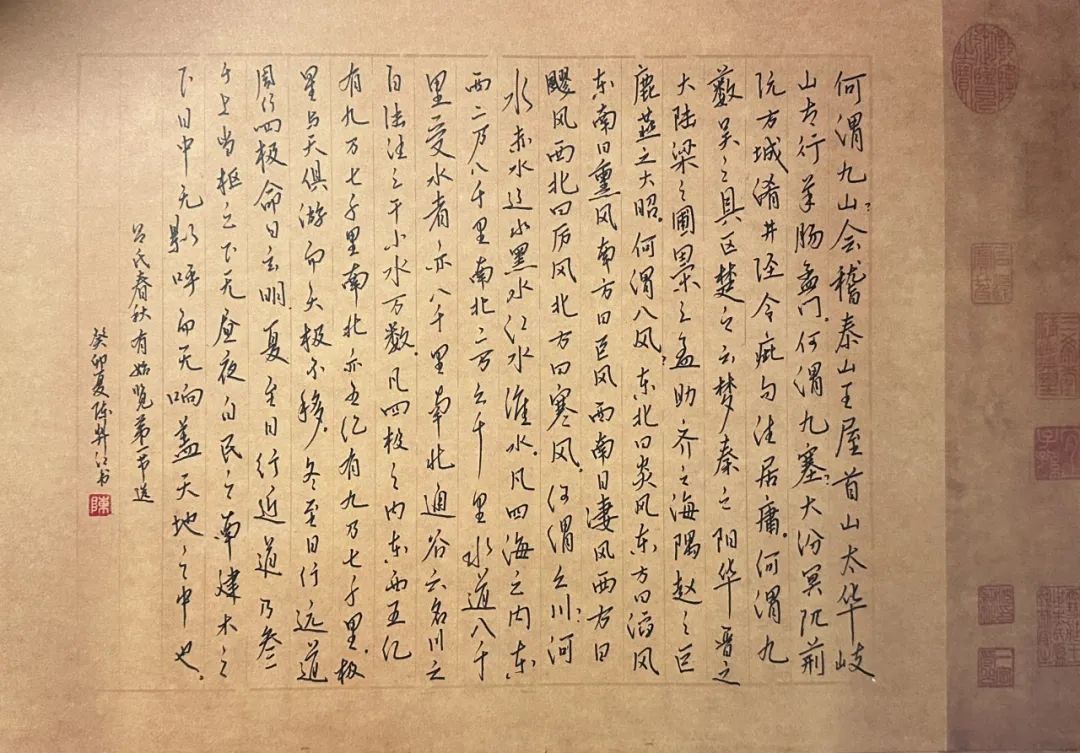 何谓九山？会稽泰山王屋首山太华岐
山太行羊肠孟门。何谓九塞？大汾冥阨荆
阮方城淆井陉令疵句注居庸。何谓九
薮吴之具区楚之云梦秦之阳华晋之
大陆梁之圃田宋之孟助齐之海隅赵之巨
鹿燕之大昭。何谓八风？东北曰炎风东方曰滔风
东南曰熏风南方曰巨风西南曰凄风西方曰
飂风西北曰厉风北方曰寒风。何谓六川：河
水赤水辽水黑水江水淮水。凡四海之内东
西二万八千里南北二万六千里水道八千
里受水者亦八千里南北通谷六名川六
百陆注三千小水万数。凡四极之内东西五亿
有九万七千里南北亦五亿有九万七千里。极
星与天俱游而天极不移。冬至日行远道
周行四极命曰玄明。夏至日行近道乃叁
于上当枢之下无昼夜白民之南建木之
下日中无影呼而无响盖天地之中也。
吕氏春秋有始览第一节选
癸卯夏陈 江书
陳